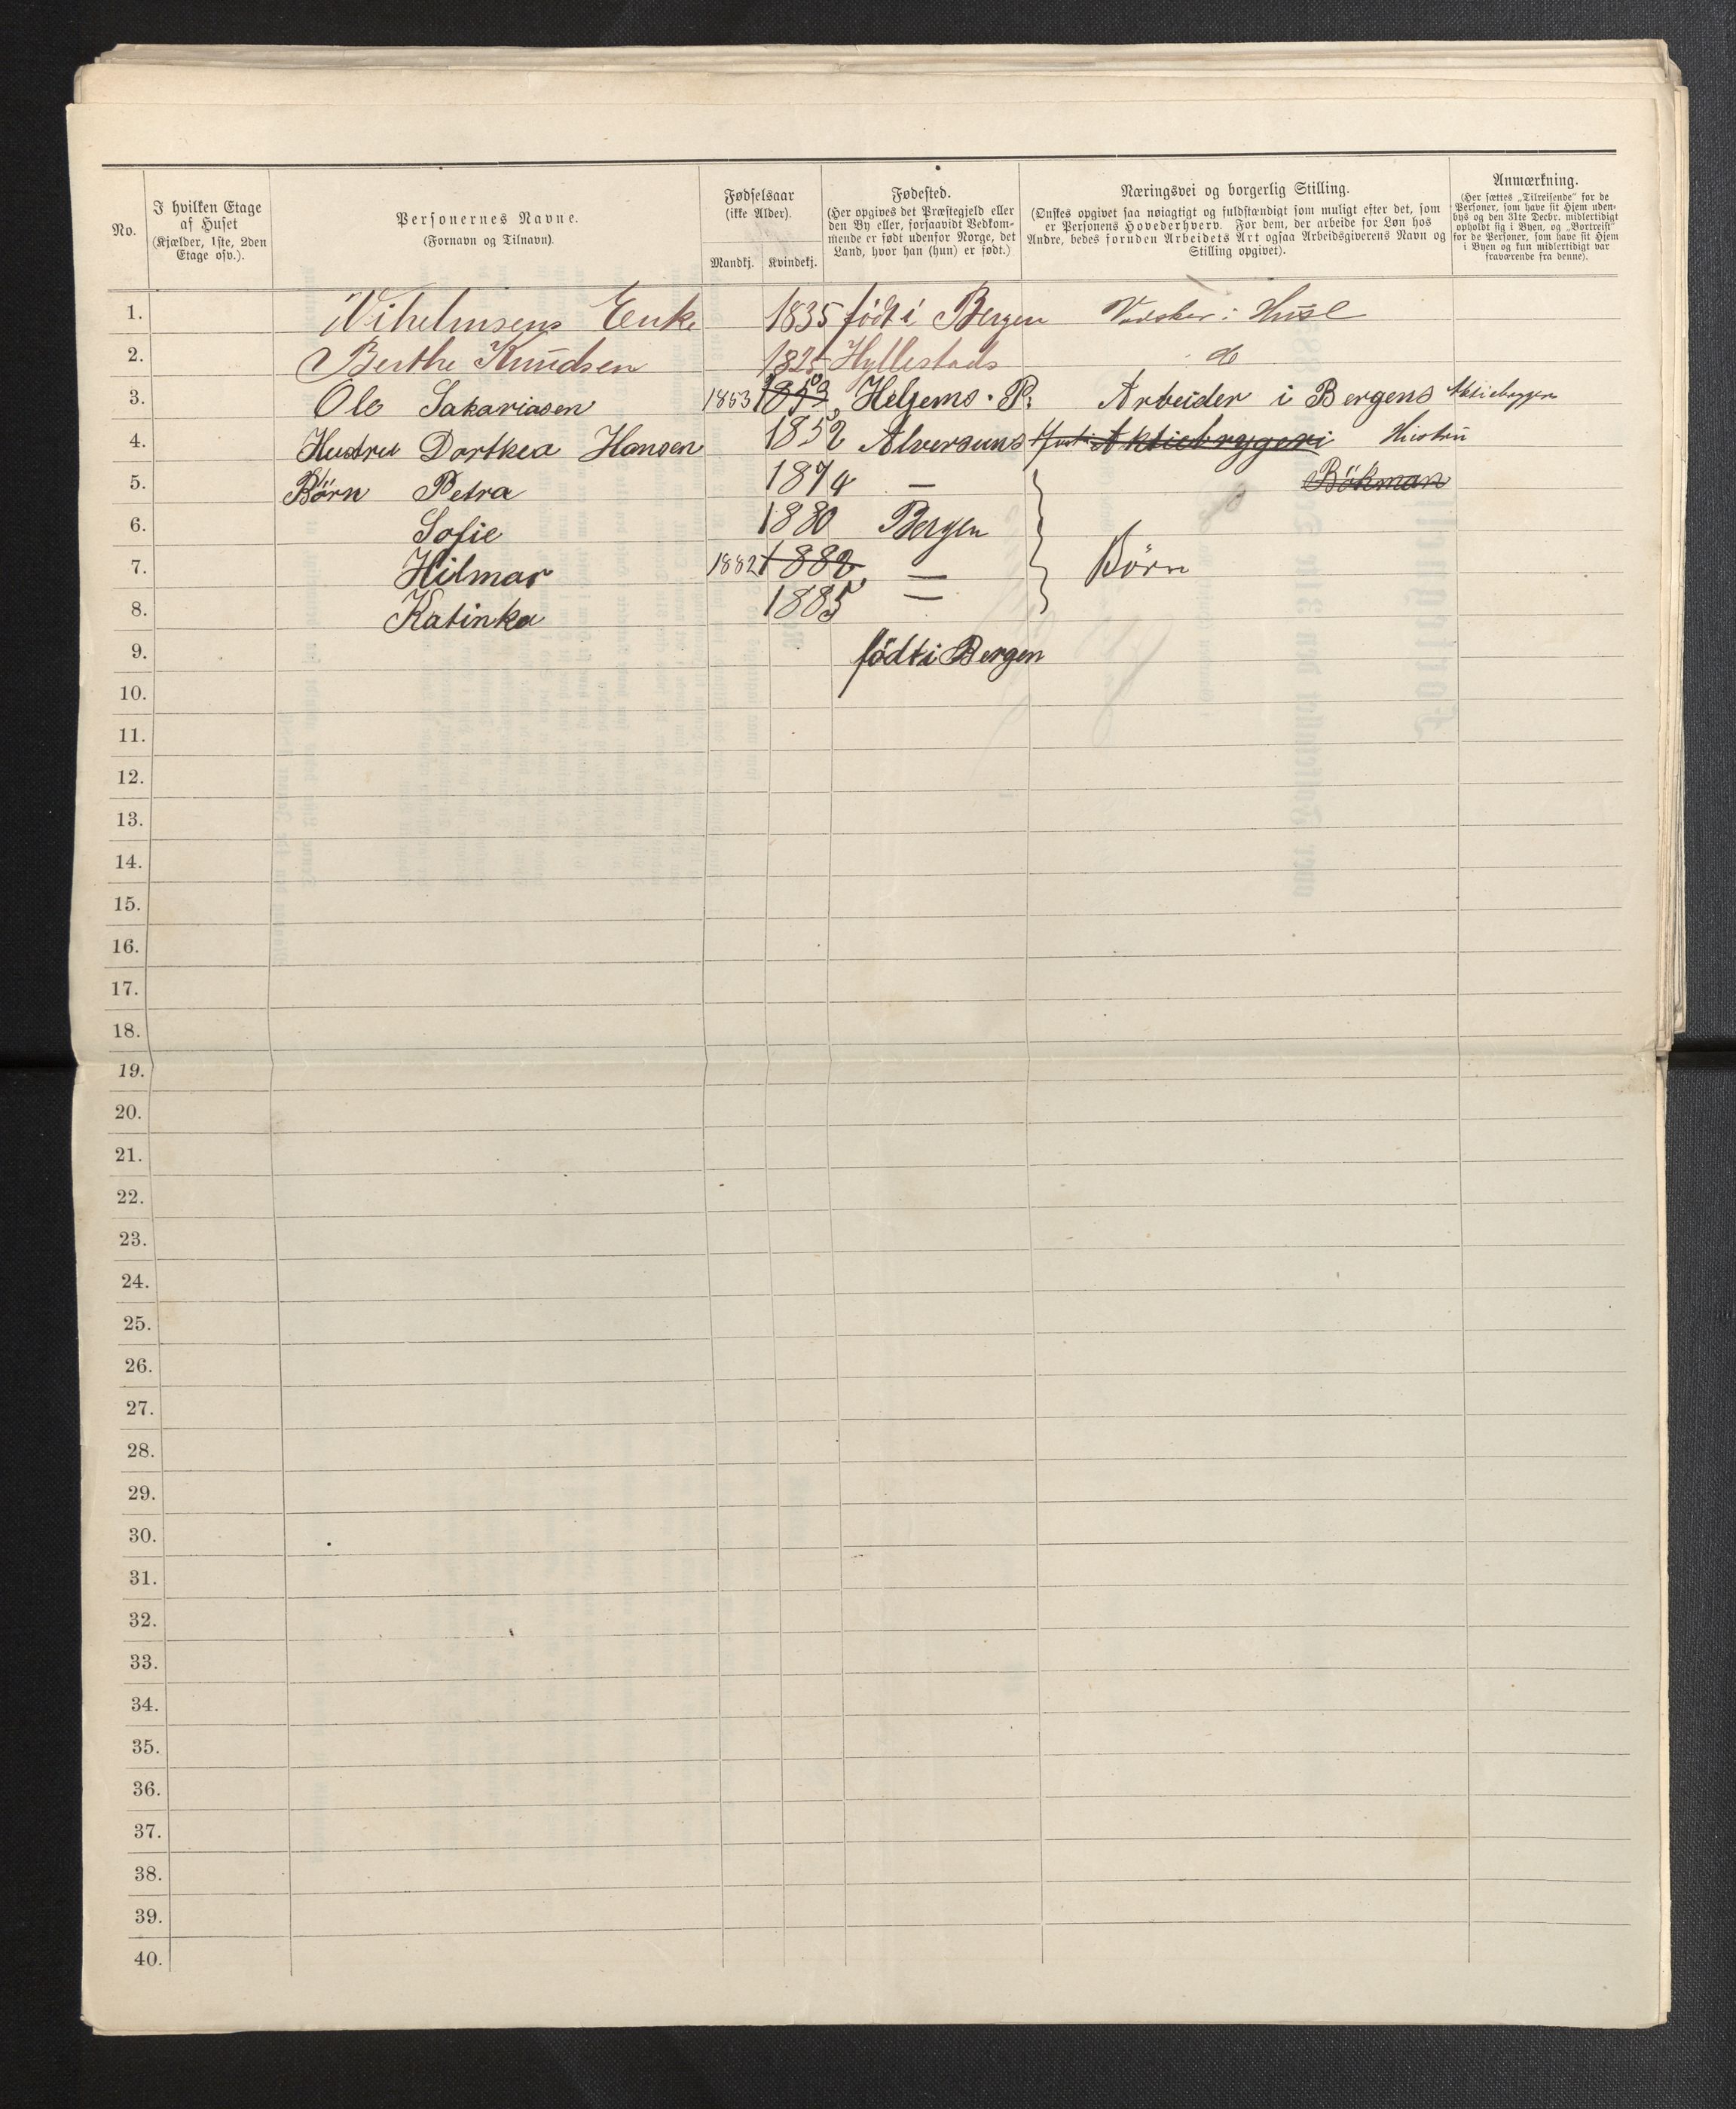 No.
I hvilken Etage af Huset (Kjælder, 1ste, 2den Etage osv.).
Personernes Navne. (Fornavn og Tilnavn).
Fødselsaar (ikke Alder). Mandkj. Kvindekj.
Fødested. (Her opgives det Præstegjeld eller den By eller, forsaavidt Vedkommende er født udenfor Norge, det Land, hvor han (hun) er født.)
Næringsvei og borgerlig Stilling. (Ønskes opgivet saa nøiagtigt og fuldstændigt som muligt efter det, som er Personens Hovederhverv. For dem, der arbeide for Løn hos Andre, bedes foruden Arbeidets Art ogsaa Arbeidsgiverens Navn og Stilling opgivet).
Anmærkning. (Her sættes „Tilreisende“ for de Personer, som have sit Hjem udenbys og den 31te Decbr. midlertidigt opholdt sig i Byen, og „Bortreist“ for de Personer, som have sit Hjem i Byen og kun midlertidigt var fraværende fra denne).
1. Vihelmsens Enke 1835 født i Bergen i Huse
2. Berthe Knudsen 1825 Hyllestads do
3. Ole Sakariasen 1853 1853 Heljems. P: Arbeider i Bergens Aktiebryggeri
4. Hustru Dorthea Hansen 1852 Alversuns Aktiebryggeri Hustru
5. Børn Petra 1874 — Bökman
6. Sofie 1880 Bergen
7. Hilmar 1882 1882 — Børn
8. Katinka 1885 —
9. födt i Bergen
10.
11.
12.
13.
14.
15.
16.
17.
18.
19.
20.
21.
22.
23.
24.
25.
26.
27.
28.
29.
30.
31.
32.
33.
34.
35.
36.
37.
38.
39.
40.